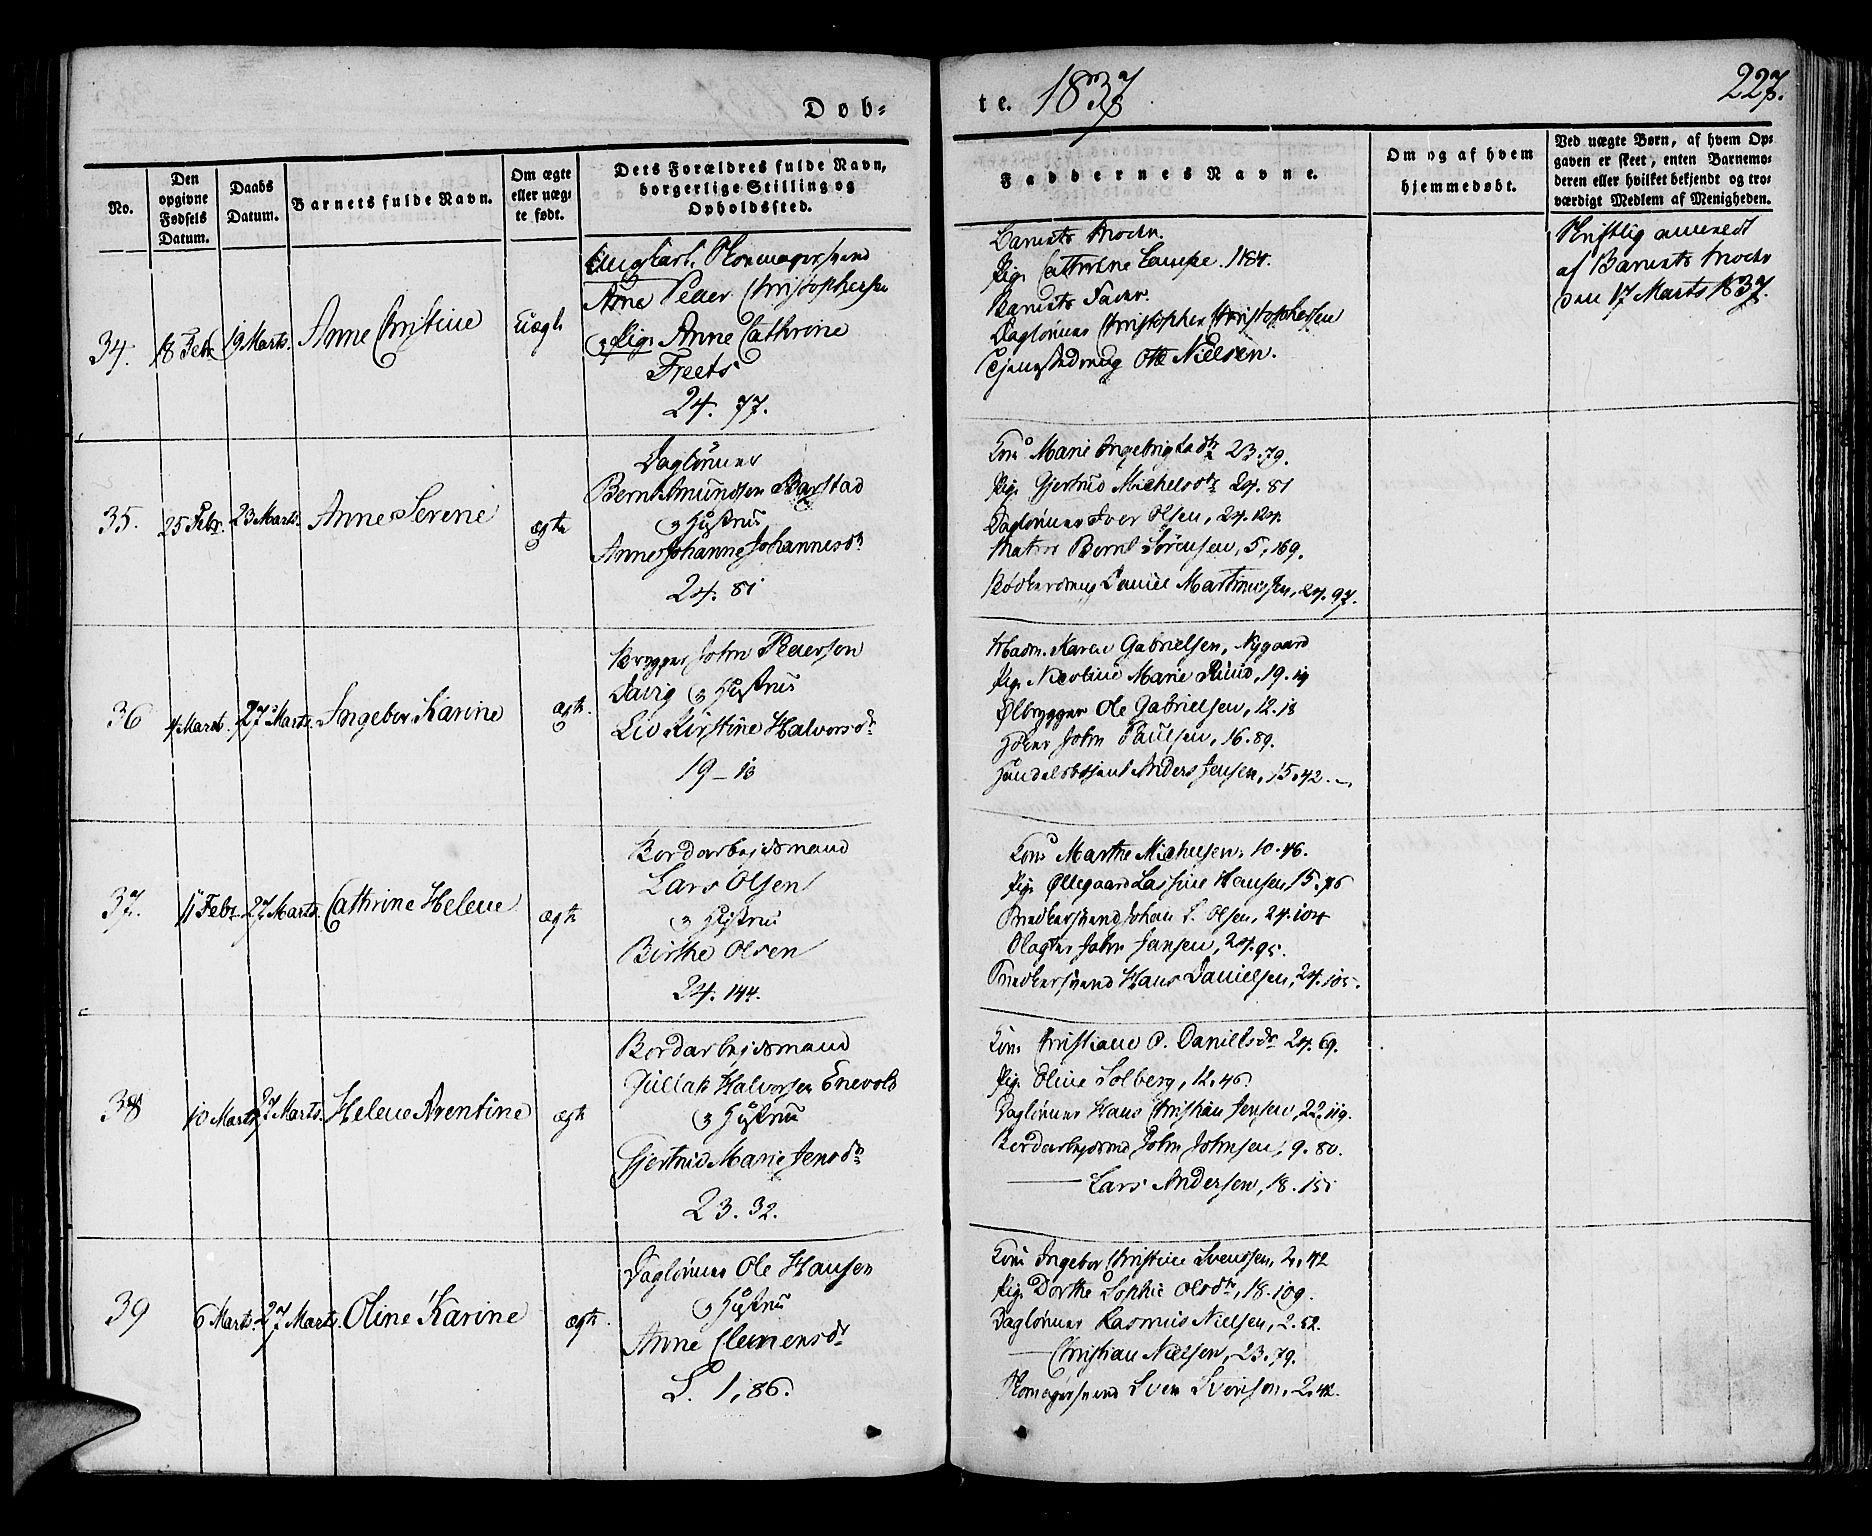 Døb-
te. 1837
227.
No.
Den opgivne Fødsels Datum.
Daabs Datum.
Barnets fulde Navn.
Om ægte eller uægte født.
Dets Forældres fulde Navn, borgerlige Stilling og Opholdssted.
Faddernes Navne.
Om og af hvem hjemmedøbt.
Ved uægte Børn, af hvem Opgaven er skeet, enten Barnemoderen eller hvilket bekjendt og troværdigt Medlem af Menigheden.
34.
18 Febr
19 Marts.
Anne Christine
Uægte
Ungkarl, Skomagersvend
Peder Christophersen
og Pige Anne Cathrine
Freets
24. 77.
Barnets Moder.
Pige Cathrine Lampe. 1184.
Barnets Fader.
Daglønner Christopher Christophersen
Otte Nielsen.
Skriftlig anmeldt
af Barnets Moder
den 17 Marts 1837.
35.
25 Febr.
23 Marts.
Anne Serine
ægte
Daglønner
Bernt Amundsen Barstad
og Hustrue
Anne Johanne Johannesdr
24. 81
Kone Marie Ingebrigtsdr 23.79.
Pige Gjertrud Michelsdr 24. 81
Daglønner Iver Olsen, 24.124.
Matros Bernt Sørensen, 5, 169.
Bødkerdreng Daniel Martinussen, 24.97.
36
4 Marts.
27 Marts.
Ingebor Karine
ægte.
Brygger John Pedersen
Davig og Hustrue
Liv Kirstine Halvorsdr
19 - 13
Madm. Karen Gabrielsen, Nygaard
Pige Nicoline Marie Ruud, 19.19
Ølbrygger Ole Gabrielsen, 12.18
John Paulsen, 16.89.
Handelsbetjent Anders Jensen, 15.42.
37.
11 Febr.
27 Marts.
Cathrine Helene
ægte
Bordarbejdsmand
Lars Olsen
og Hustrue
Birthe Olsen
24. 144.
Kone Marthe Michelsen, 10.46.
Pige Øllegaard Lassine Hansen 15.46
Snedkersvend Johan L. Olsen, 24.104
Slagter John Jensen, 24.95.
Snedkersvend Hans Danielsen, 24.105.
38
10 Marts
27 Marts.
Helene Arentine
ægte
Bordarbejdsmand
Gullak Halvorsen Enevold
og Hustrue
Gjertrud Marie Jensdr
23. 32.
Kone Christiane P. Danielsdr 24. 69.
Pige Oline Solberg, 12.46.
Daglønner Hans Christian Jensen, 22.119.
Bordarbejdsmd John Johnsen, 9.80.
— Lars Andersen, 18.155
39
6 Marts.
27 Marts.
Oline Karine
ægte.
Daglønner Ole Hansen
og Hustrue
Anne Clemensdr
L. 1, 86.
Kone Ingebor Christine Svendsen, 2.42
Pige Dorthe Sophie Olsdr, 18.109.
Daglønner Rasmus Nielsen, 2.52.
— Christian Nielsen, 23.79.
Skomagersvend Sven Svensen, 2.42.